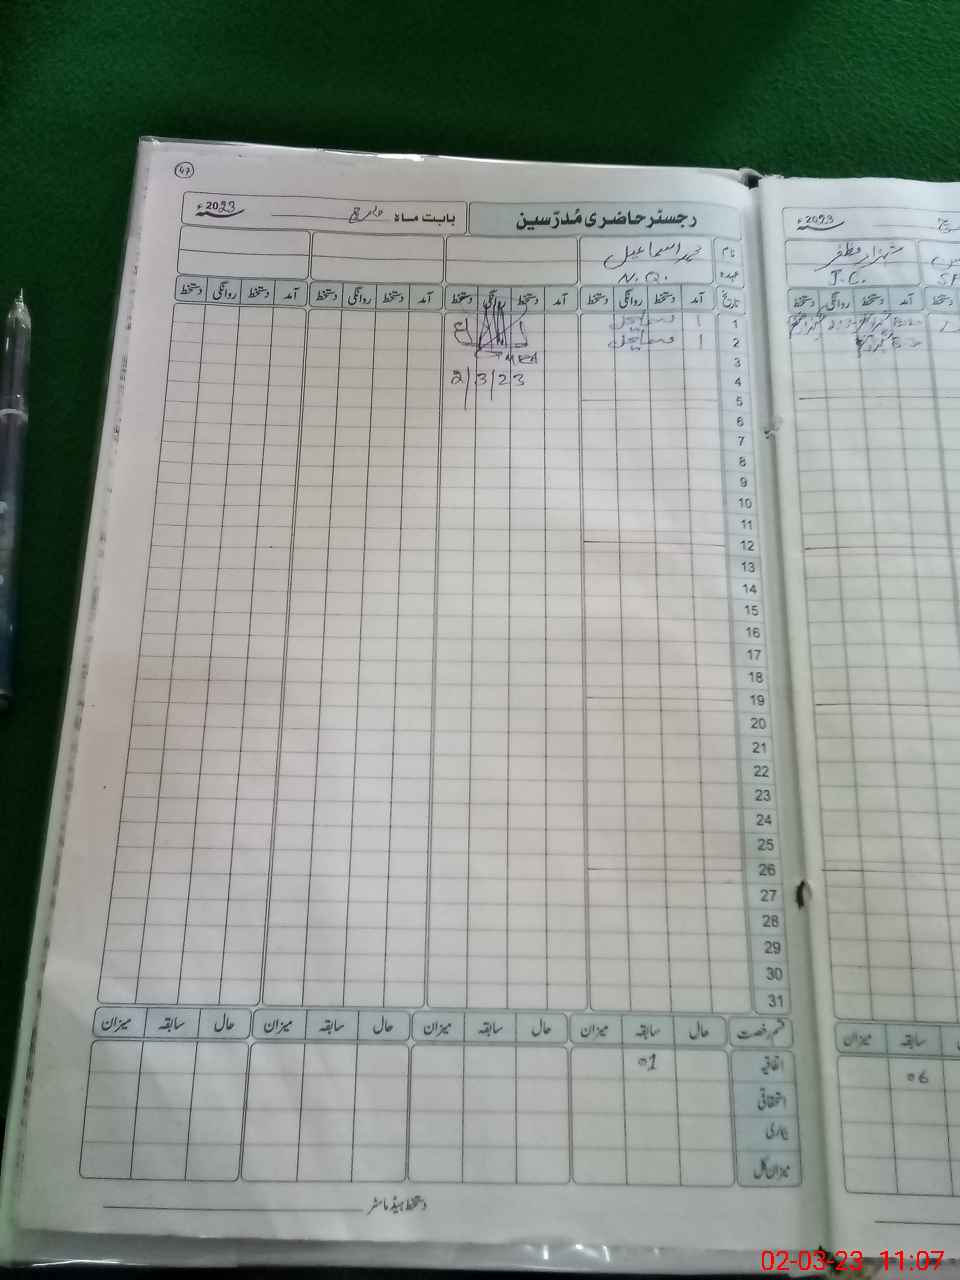 47
رجسٹر حاضری مُدرّسین بابت ماہ مارچ 2023ء
نام اسماعیل
عہدہ N.Q.
تاریخ آمد دستخط روانگی دستخط آمد دستخط روانگی دستخط آمد دستخط روانگی دستخط آمد دستخط روانگی دستخط
1 ا
2 ا
MEA
3
2/3/23
4
5
6
7
8
9
10
11
12
13
14
15
16
17
18
19
20
21
22
23
24
25
26
27
28
29
30
31
قسم رخصت حال سابقہ میزان حال سابقہ میزان حال سابقہ میزان حال سابقہ میزان
اتفاقیہ 01
استحقاقی
بیماری
میزان کل
دستخط ہیڈ ماسٹر
2023ء
شہزاد مظفر
J.C.
آمد دستخط روانگی دستخط
سابقہ میزان
06
02-03-23 11:07